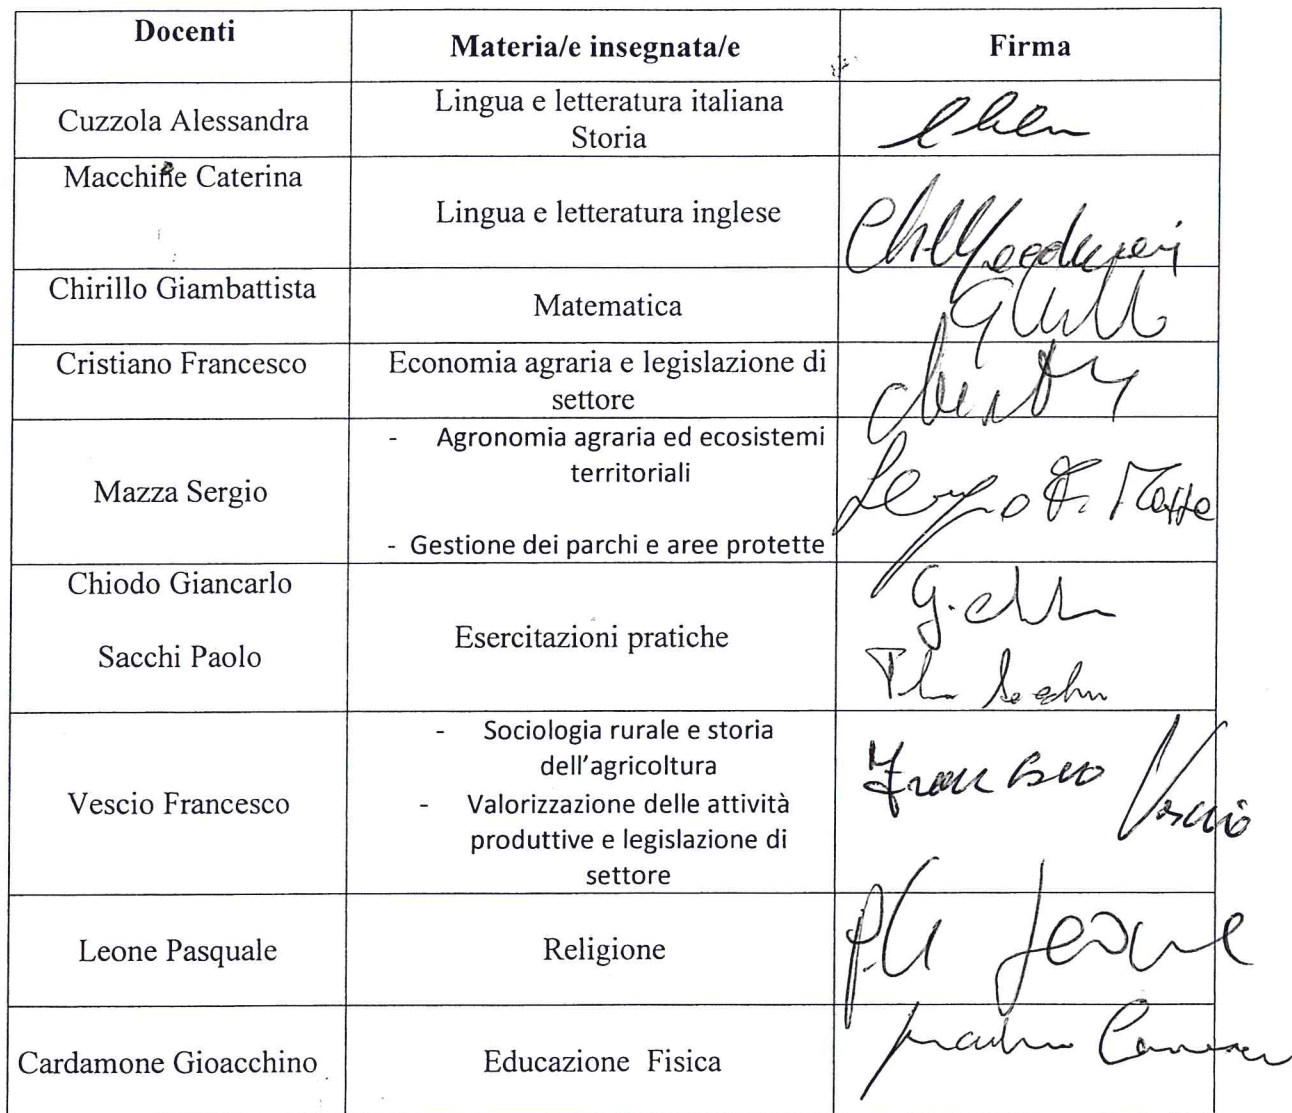 Docenti
Materia/e insegnata/e
Firma
Cuzzola Alessandra
Lingua e letteratura italiana
Storia
Macchine Caterina
Lingua e letteratura inglese
Chirillo Giambattista
Matematica
Cristiano Francesco
Economia agraria e legislazione di
settore
Mazza Sergio
- Agronomia agraria ed ecosistemi
territoriali
- Gestione dei parchi e aree protette
Chiodo Giancarlo
Sacchi Paolo
Esercitazioni pratiche
Vescio Francesco
- Sociologia rurale e storia
dell'agricoltura
- Valorizzazione delle attività
produttive e legislazione di
settore
Francesco Vescio
Leone Pasquale
Religione
Leone
Cardamone Gioacchino
Educazione Fisica